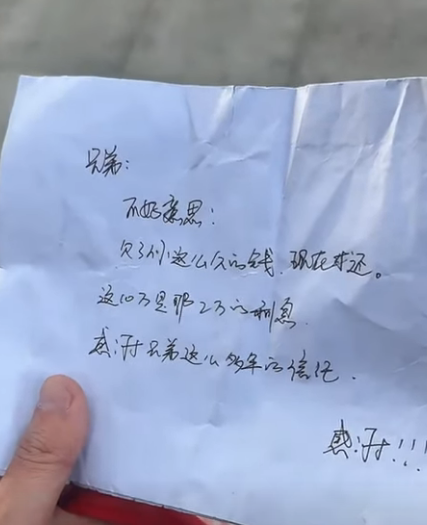 兄弟：
不好意思：
欠了你这么久的钱、现在才还。
这10万是那2万的利息.
感谢兄弟这么多年的信任.
感谢!!!